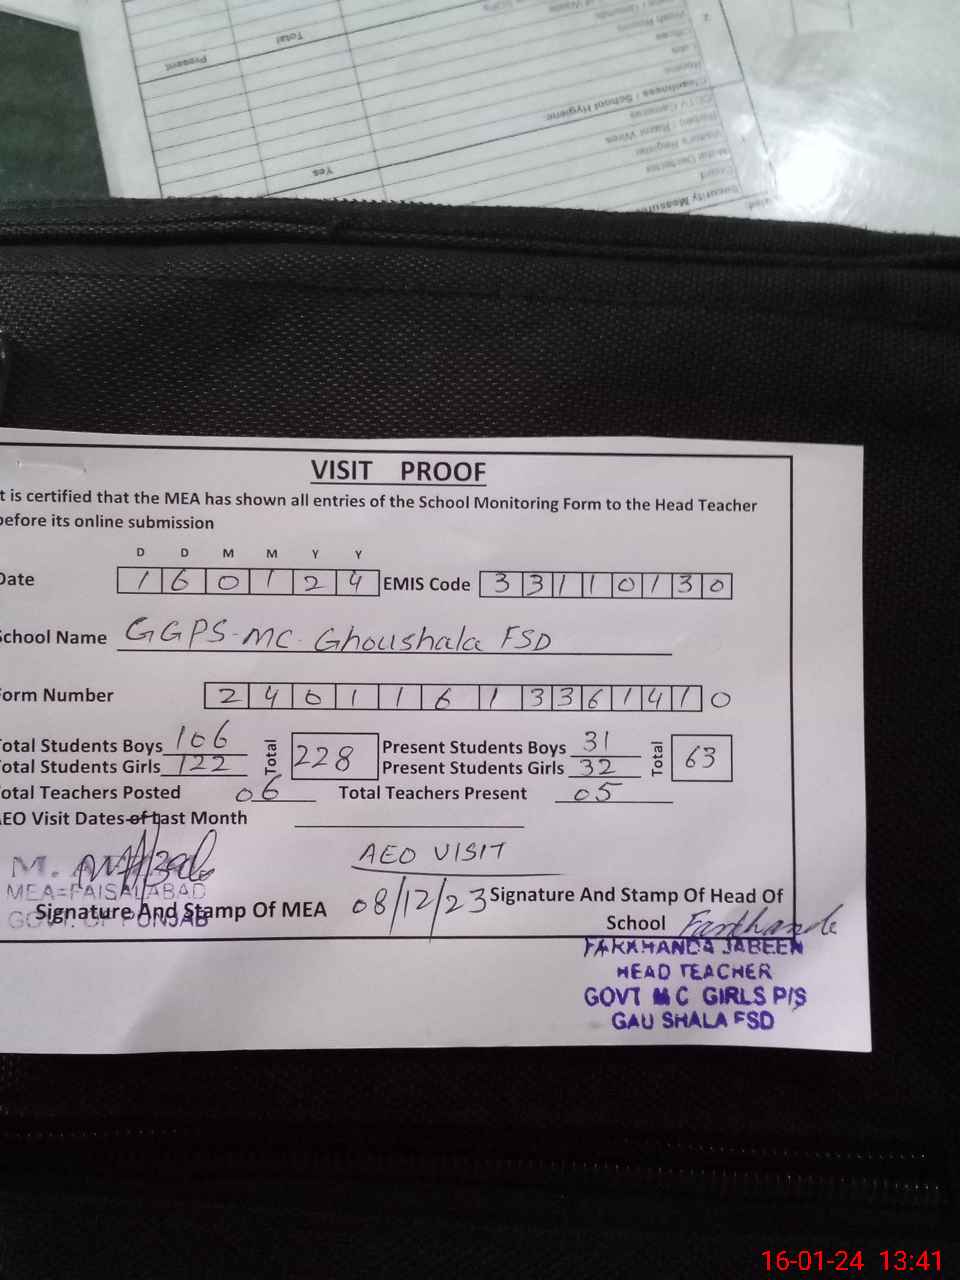 Present
Total
Yes
Cleanliness / School Hygiene
Visitor's Register
VISIT PROOF
t is certified that the MEA has shown all entries of the School Monitoring Form to the Head Teacher
before its online submission
D D M M Y Y
Date 1 6 0 1 2 4 EMIS Code 3 3 1 1 0 1 3 0
School Name GGPS-MC-Ghoushala FSD
Form Number 2 4 0 1 1 6 1 3 3 6 1 4 1 0
Total Students Boys 106 Total 228 Present Students Boys 31 Total 63
Total Students Girls 122 Present Students Girls 32
Total Teachers Posted 06 Total Teachers Present 05
AEO Visit Dates of Last Month
AEO VISIT
08/12/23
MEA=FAISALABAD
GOVT. OF PUNJAB
Signature And Stamp Of MEA
Signature And Stamp Of Head Of
School Farkhanda
FARKHANDA JABEEN
HEAD TEACHER
GOVT M C GIRLS P/S
GAU SHALA FSD
16-01-24 13:41